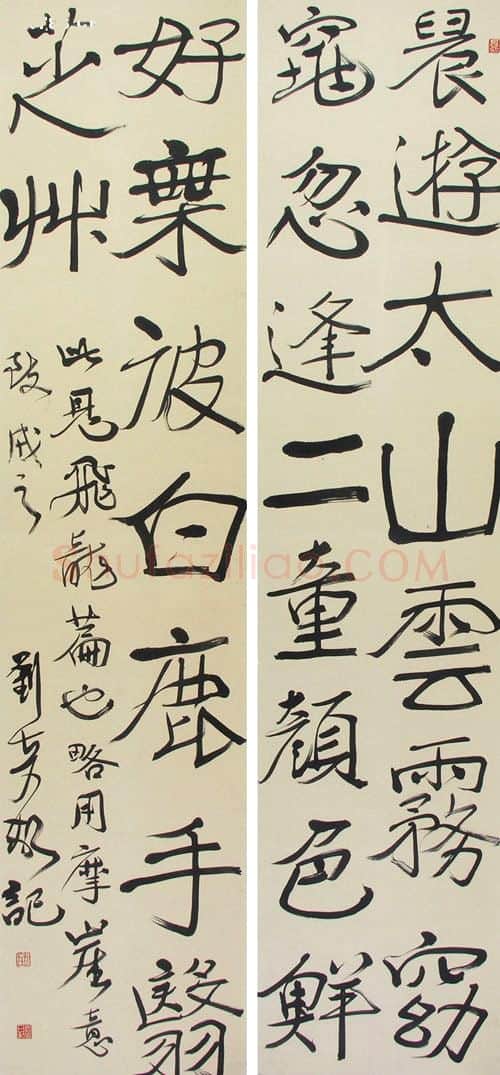 晨遊太山雲霧窈
窕忽逢二童顏色鮮
好椉彼白鹿手翳
芝艸
此是飛龍篇也略用摩崖意
致成之 劉奇 記
Shufaziliao.COM